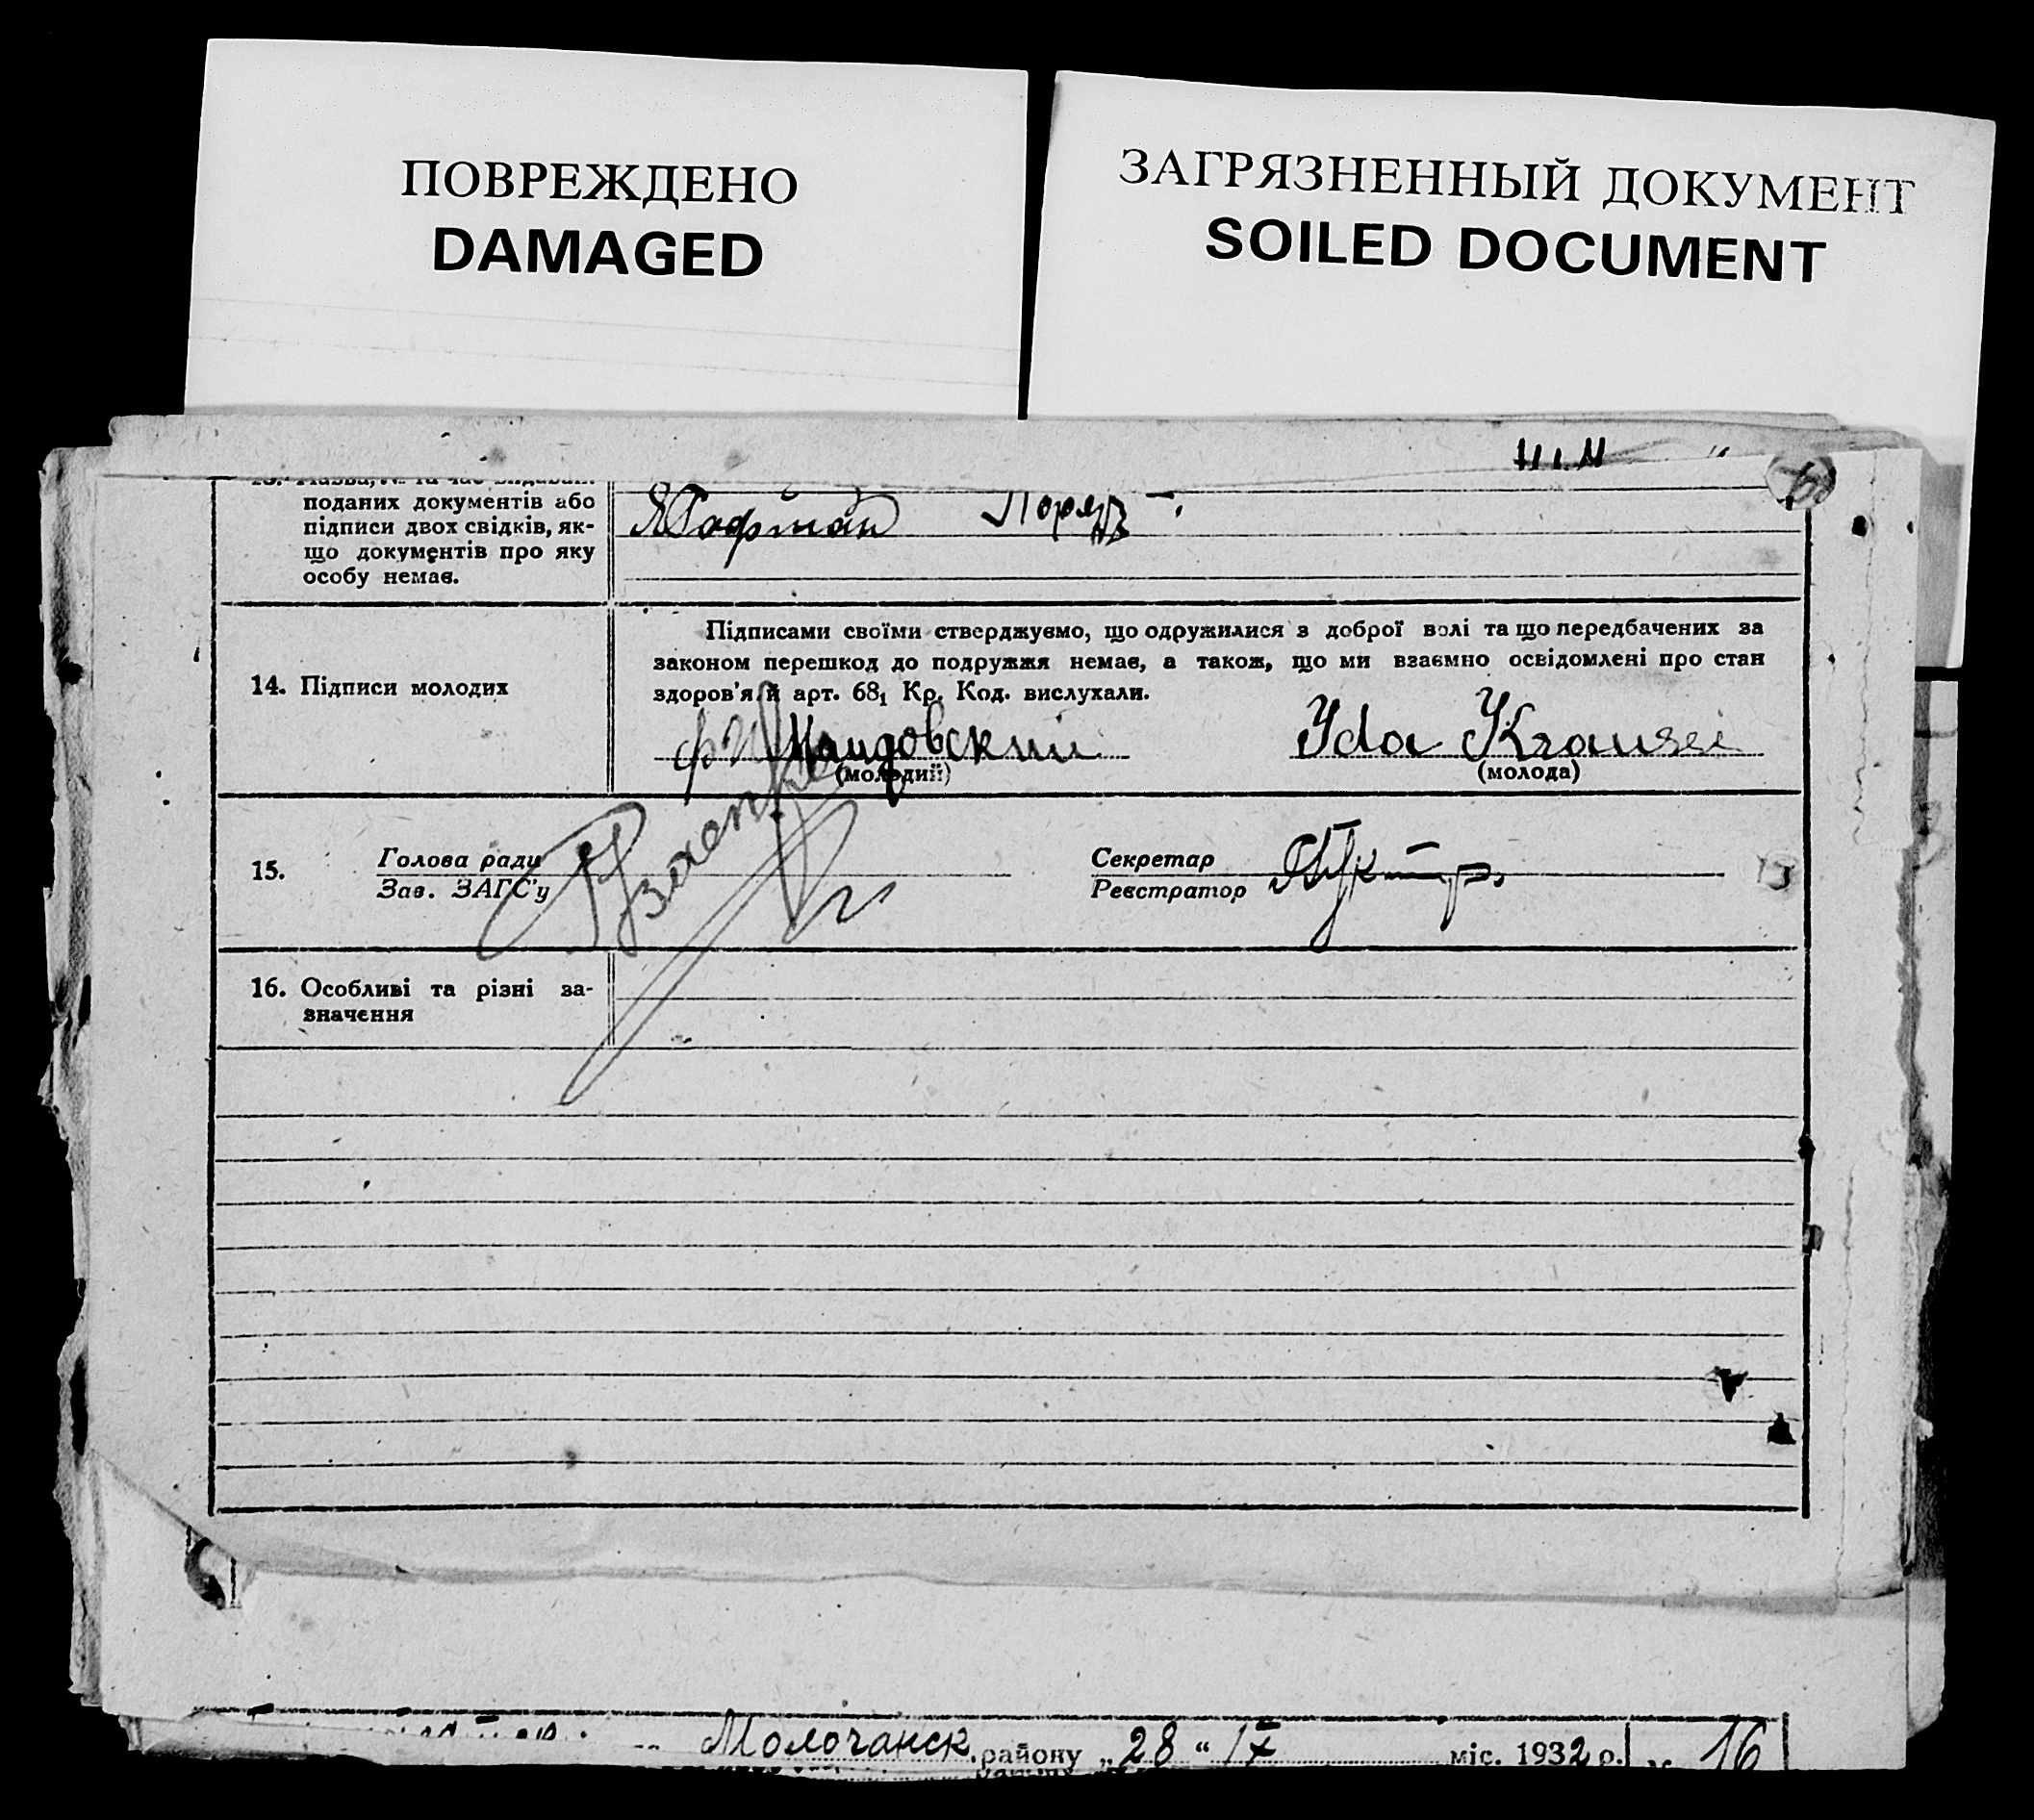 ПОВРЕЖДЕНО
DAMAGED
ЗАГРЯЗНЕННЫЙ ДОКУМЕНТ
SOILED DOCUMENT
поданих документів або
підписи двох свідків, як-
що документів про яку
особу немає.
Гофман
14. Підписи молодих
Підписами своїми стверджуємо, що одружилися з доброї волі та що передбачених за
законом перешкод до подружжя немає, а також, що ми взаємно освідомлені про стан
здоров'я й арт. 68₁ Кр. Код. вислухали.
Yda Krause
(молодий)
(молода)
15.
Голова ради
Зав. ЗАГС'у
Секретар
Реєстратор
16. Особливі та різні за-
значення
Молочанск. району „28“ IX міс. 1932 р. 16